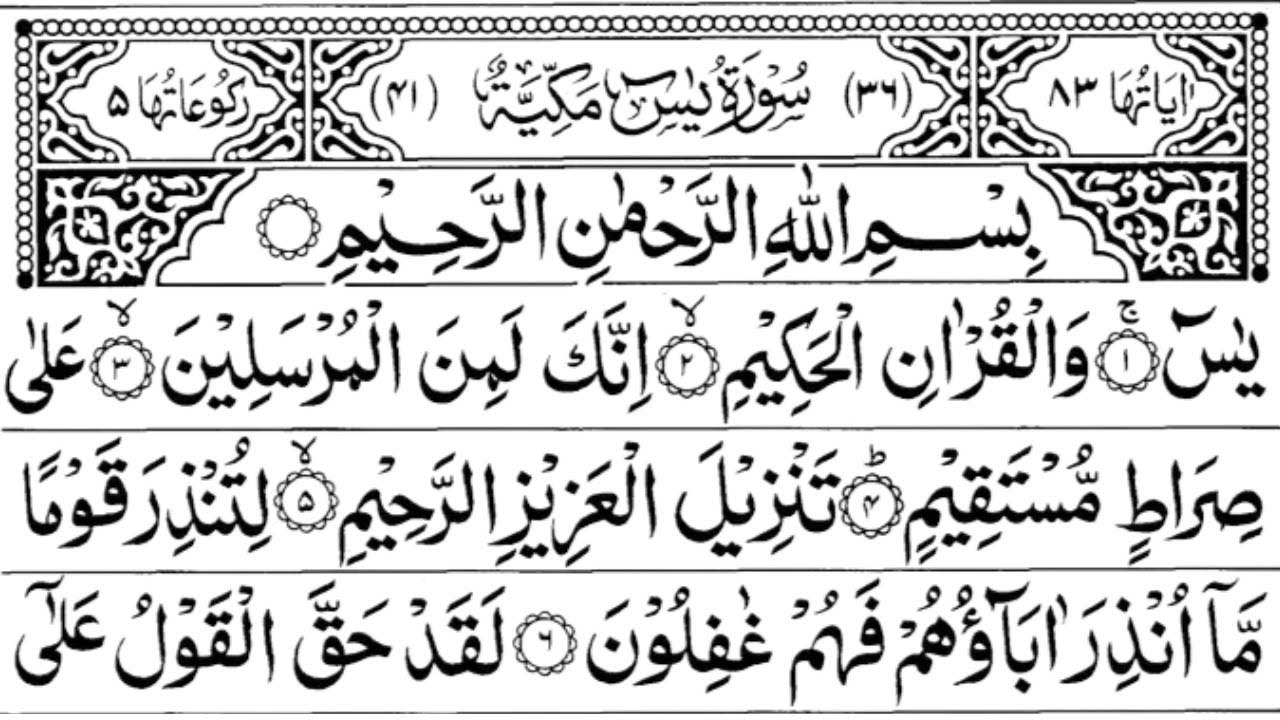 اٰيَاتُهَا ٨٣ (٣٦) سُوْرَةُ يٰسٓ مَكِّيَّةٌ (٤١) رُكُوْعَاتُهَا ٥
بِسْمِ اللّٰهِ الرَّحْمٰنِ الرَّحِيْمِ
يٰسٓ ۚ﴿١﴾ وَالْقُرْاٰنِ الْحَكِيْمِ ۙ﴿٢﴾ اِنَّكَ لَمِنَ الْمُرْسَلِيْنَ ۙ﴿٣﴾ عَلٰى
صِرَاطٍ مُّسْتَقِيْمٍ ؕ﴿۴﴾ تَنْزِيْلَ الْعَزِيْزِ الرَّحِيْمِ ۙ﴿۵﴾ لِتُنْذِرَ قَوْمًا
مَّاۤ اُنْذِرَ اٰبَآؤُهُمْ فَهُمْ غٰفِلُوْنَ ﴿٦﴾ لَقَدْ حَقَّ الْقَوْلُ عَلٰۤى